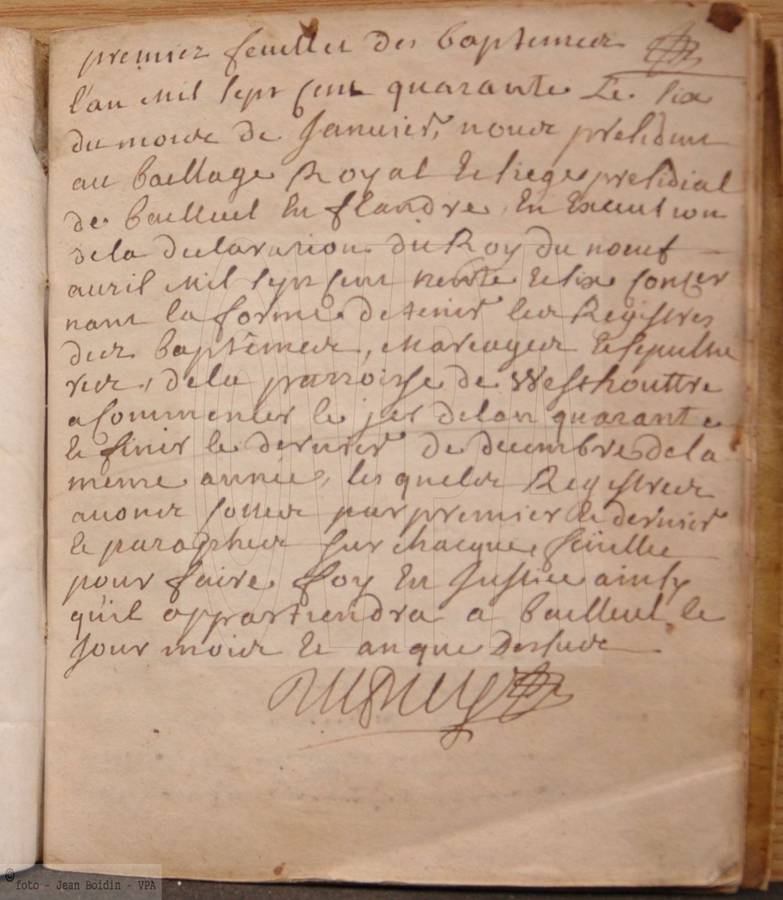 premier feuillet des baptemes
l'an mil sept cent quarante Le six
du mois de Januier, nous president
au baillage Royal et siege presidial
de bailleul En flandre, En Execution
de la declaration du Roy du noeuf
auril mil sept cent trente et six concer
nant la forme de tenir les Registres
des baptêmes, mariages et sepultu
res, de la parroisse de Westhouttre
a commencer le jer de lan quarante
et finir le dernier de decembre de la
meme année, les quels Registres
auons cottes par premier et dernier
et paraphes sur chacque feüillet
pour faire foy En Justice ainsy
qu'il appartiendra a bailleul le
Jour mois et an que dessus
© foto - Jean Boidin - VPA